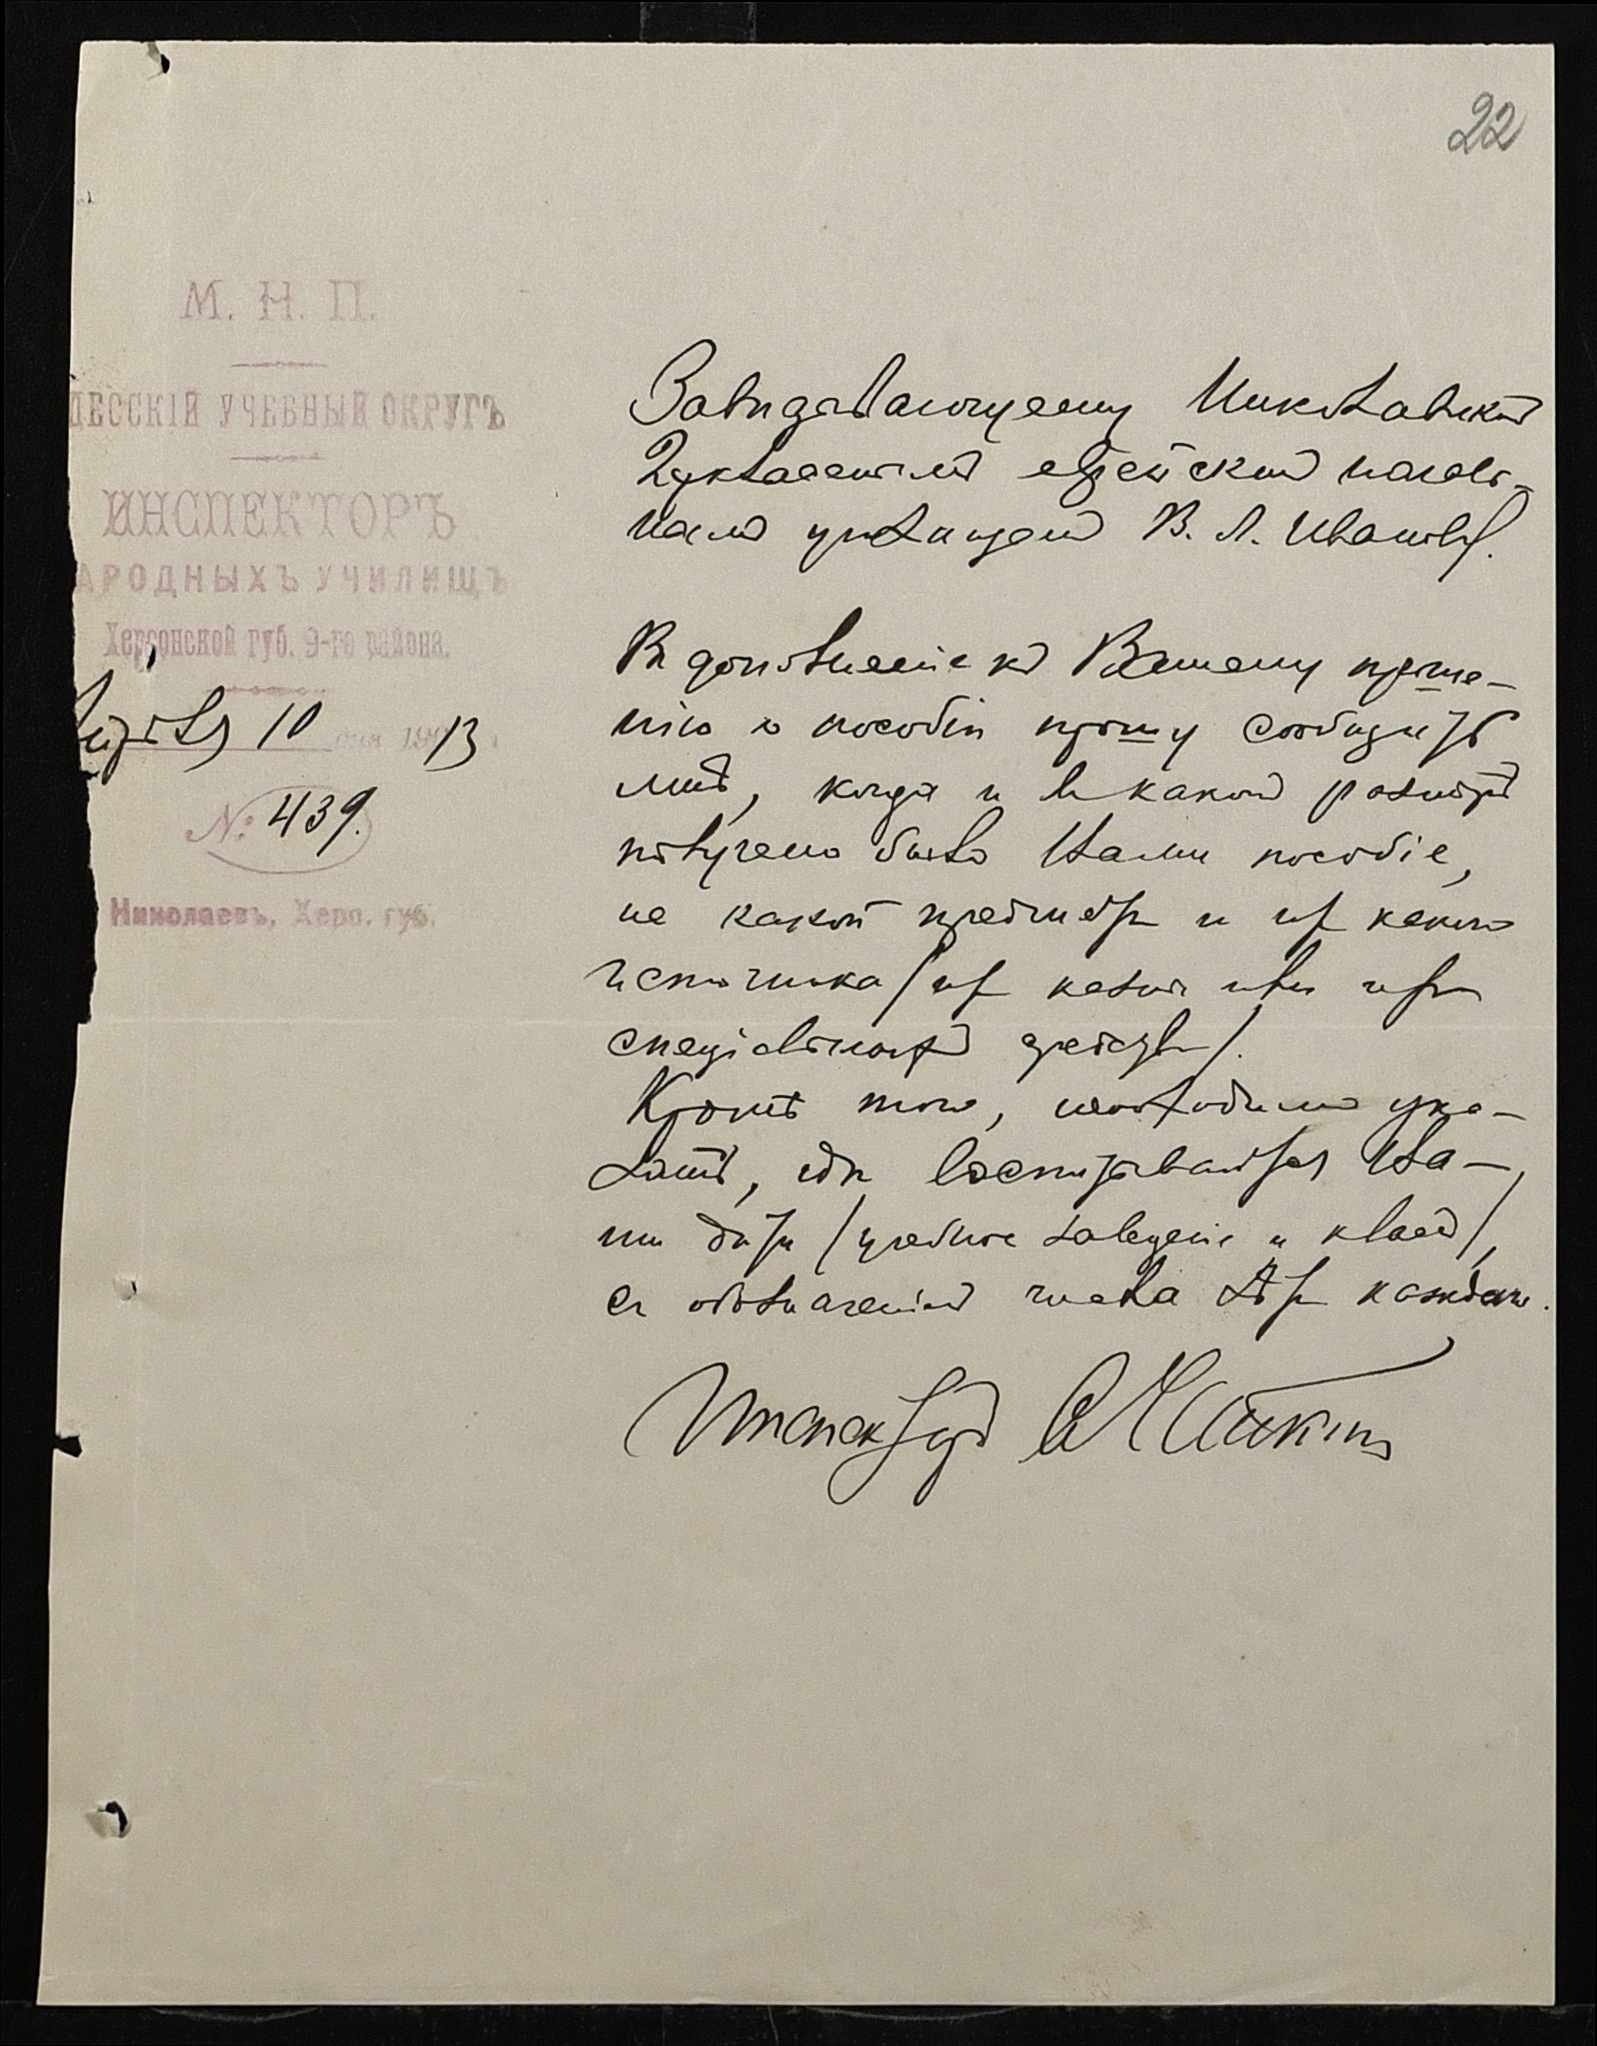 22
М. Н. П.
ДЕССКІЙ УЧЕБНЫЙ ОКРУГЪ
ИНСПЕКТОРЪ
АРОДНЫХЪ УЧИЛИЩЪ
Херсонской губ. 9-го района.
10 дня 13
№ 439.
Николаевъ, Херс. губ.
Завѣдывающему Николаевскимъ
2хкласснымъ еврейскимъ началь-
нымъ училищемъ В. Л. Иванову.
Въ дополненіе къ Вашему проше-
нію о пособіи прошу сообщить
мнѣ, когда и въ какомъ размѣрѣ
получено было Вами пособіе,
на какой предметъ и изъ какого
источника /изъ казны или изъ
спеціальныхъ средствъ/.
Кромѣ того, необходимо ука-
зать, гдѣ воспитываются Ва-
ши дѣти /учебное заведеніе и классъ/,
съ обозначеніемъ числа лѣтъ каждаго.
Инспекторъ